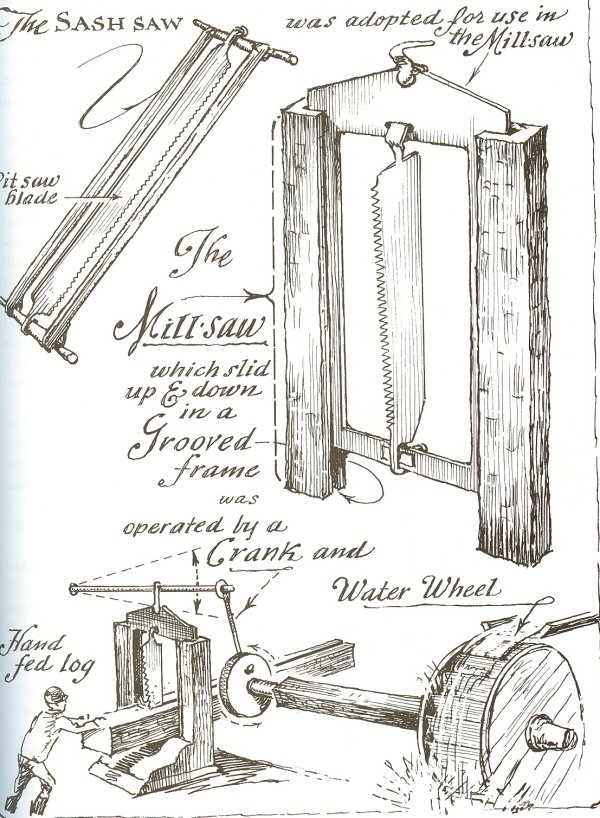 The SASH SAW
was adopted for use in
the Millsaw
Pit saw
blade
The
Mill·saw
which slid
up & down
in a
Grooved
frame
was
operated by a
Crank and
Water Wheel
Hand
fed log